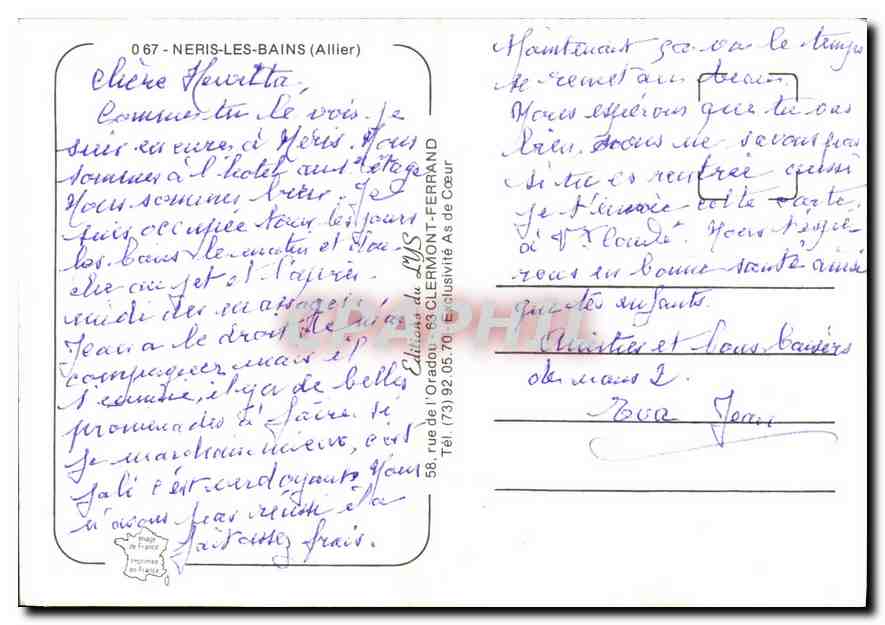 0 67 - NERIS-LES-BAINS (Allier)
chère
Comme tu le vois, je
suis en cures à Néris. Nous
sommes à l'hotel au 1 étage
Nous sommes bien. Je
suis occupée tous les jours
les bains le matin et dou
che au jet et l'après.
midi des massages.
Jean a le droit de m'ac
compagner mais il
s'ennuie, il y a de belles
promenades à faire si
je marchais mieux, c'est
joli c'est verdoyant. Nous
n'avons pas réussi il a
fait assez frais.
Image
de France
Imprimée
en France
Editions du LYS
58, rue de l'Oradou - 63 CLERMONT-FERRAND
Tél. (73) 92.05.70 - Exclusivité As de Cœur
CPAPHIL
Maintenant ça va le temps
se remet au beau.
Nous espérons que tu vas
bien. nous ne savons pas
si tu es rentrée aussi
je t'envoie cette carte
à Nous t'espé-
rons en bonne santé ainsi
que tes enfants.
Amitiés et bons baisers
de nous 2.
Eva Jean